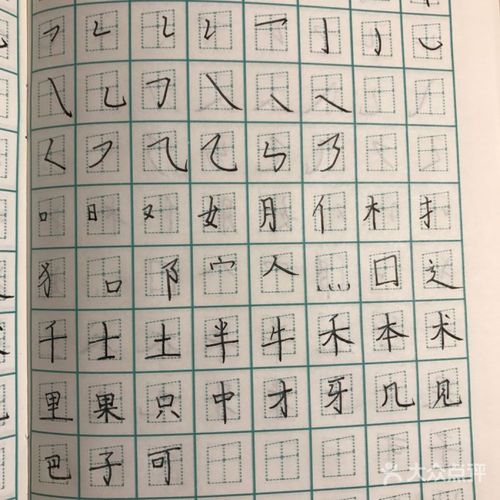 乛 𠄌 𠄌 𠄌 乛 亅 丿 ㇃
㇏ 乚 𠃌 ㇏ ㇏ ㇏
𡿨 ㇇ ⺄ 乙 ㄣ ㄋ
口 日 又 女 月 亻 木 扌
犭 口 阝 宀 人 灬 囗 辶
千 士 土 半 牛 禾 本 术
里 果 只 中 才 牙 几 见
巴 子 可
大众点评